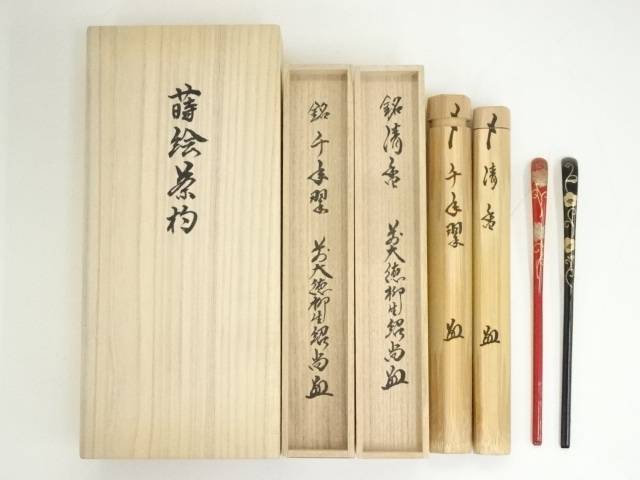 蒔絵茶杓
銘 千年翠 前大徳柳生紹尚
銘 清香 前大徳柳生紹尚
千年翠
清香